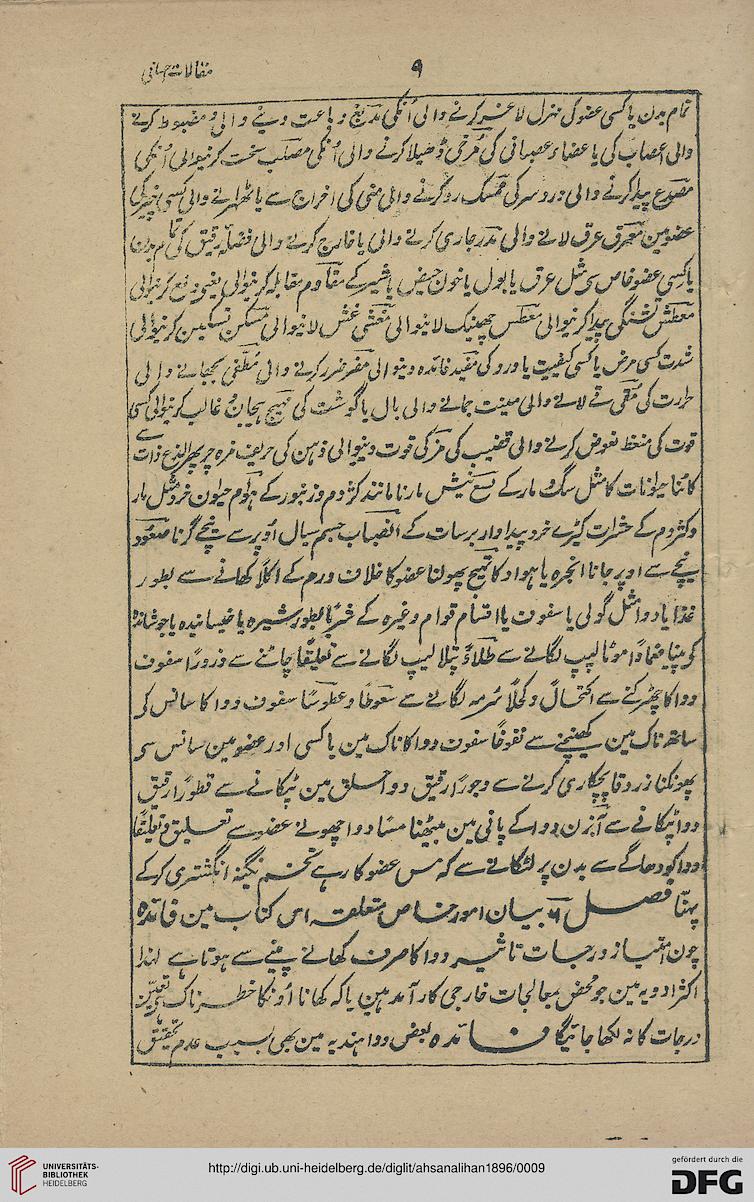 ۹
مقالات احسانی
تمام بدن یا کسی عضو کی مہزل لاغر کرنے والی اُنکی مدبغ دباغت دینے والی و مضبوط کرنے
والی اعصاب کی یا عضاء عصبانی کی مُرخی ڈھیلا کرنے والی اُنکی مصلب سخت کرنیوالی اُنکی
مصدع پیدا کرنے والی درد سر کی ممسک روکنے والی منی کی اخراج سے یا ٹھہرانے والی کسی چیز کی
عضو مین معرق عرق لانے والی مدر جاری کرنے والی یا خارج کرنے والی فضلہ رقیق کی تمام بدن
یا کسی عضو خاص سی مثل عرق یا بول یا خون حیض یا شیر کے مقاوم مقابلہ کرنیوالی یعنی دفع کرنیوالی
معطش تشنگی پیدا کرنیوالی معطس چھینک لانیوالی مغشی غش لانیوالی مسکن تسکین کرنیوالی
شدت کسی مرض یا کسی کیفیت یا درد کی مفید فائدہ دینوالی مضر ضرر کرنے والی مُطفی بجھانے والی
حرارت کی مُقی قے لانے والی منبت جمانے والی بال یا گوشت کی مہیج ہیجان غالب کرنیوالی کسی
قوت کی منعظ نعوض کرنے والی قضیب کی قوت دینوالی ذہن کی حریف مزہ چرپھرا لذع ذات
کاٹنا حیوانات کا مثل سگ و مار کے لسع نیش مارنا مانند کژدم و زنبور کے ہوام حیوان خرد مثل مار
و کژدم کے حشرات کیڑے خرد پیداوار برسات کے انصباب جسم سیال اُوپر سے نیچے گرنا صعود
نیچے سے اوپر جانا ابخرہ یا ہوا کا تہیج پھولنا عضو کا خلاف ورم کے اکلاً کھانے سے بطور
غذا یا دوا مثل گولی یا سفوف یا اقسام قوام وغیرہ کے شرباً بطور شیرہ یا خیساندہ یا جوشاندہ
کی پینا ضماداً موٹا لیپ لگانے سے طلاءً پتلا لیپ لگانے سے لعوقاً چاٹنے سے ذروراً سفوف
دوا کا چھڑکنے سے اکتحالاً و کحلاً سُرمہ لگانے سے سعوطاً و عطوساً سفوف دوا کا سانس کے
ساتھ ناک مین کھینچنے سے نفوخاً سفوف دوا کا ناک مین یا کسی اور عضو مین سانس سی
پھونکنا زروقاً پچکاری کرنے سے وجوراً رقیق دوا حلق مین ٹپکانے سے قطوراً رقیق
دوا ٹپکانے سے آبزن دوا کے پانی مین بیٹھنا مسّاً دوا چھونے عضو سے تعلیق و تعلیقاً
دوا کو دھاگے سے بدن پر لٹکانے سے کہ مس عضو کا رہے تختم نگینہ انگشتری کرکے
پہننا فصل بیان امور خاص متعلقہ اس کتاب مین فائدہ
چون امتیاز درجات تاثیر دوا کا صرف کھانے پینے سے ہوتا ہے لہذا
اکثر ادویہ مین جو محض معالجات خارجی کارآمد ہین یا کہ کھانا اُونکا خطرناک ہی تعیین
درجات کا نہ لکھا جائیگا فائدہ بعض دوا ہندیہ مین بھی بسبب عدم تحقیق
UNIVERSITÄTS-
BIBLIOTHEK
HEIDELBERG
http://digi.ub.uni-heidelberg.de/diglit/ahsanalihan1896/0009
gefördert durch die
DFG